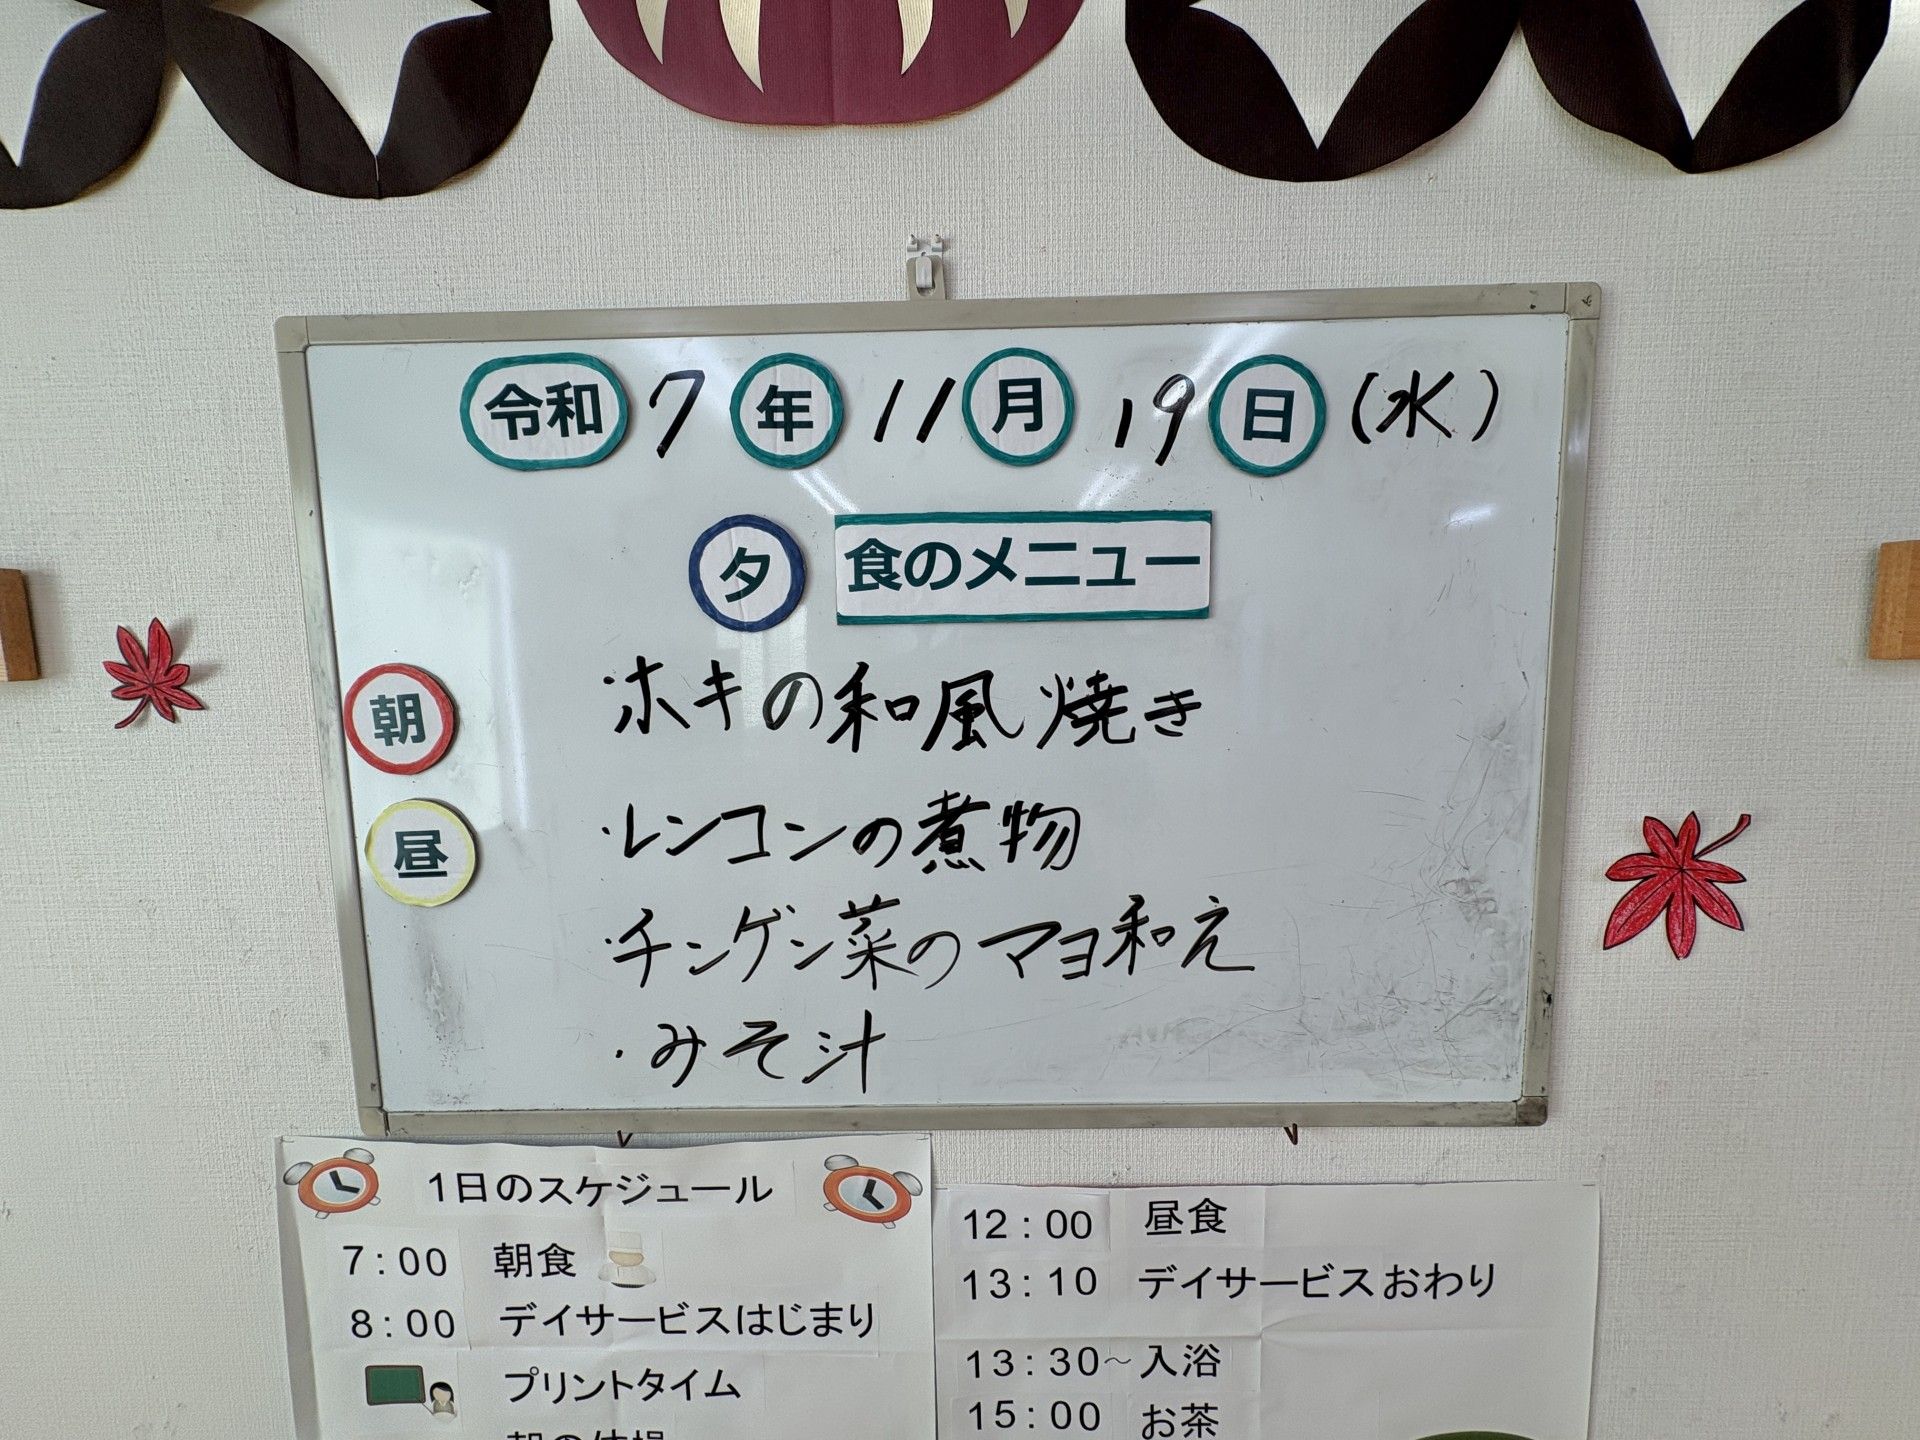 令和7年11月19日(水)
夕食のメニュー
朝
昼
・ホキの和風焼き
・レンコンの煮物
・チンゲン菜のマヨ和え
・みそ汁
1日のスケジュール
7:00 朝食
8:00 デイサービスはじまり
プリントタイム
朝の体操
12:00 昼食
13:10 デイサービスおわり
13:30~入浴
15:00 お茶